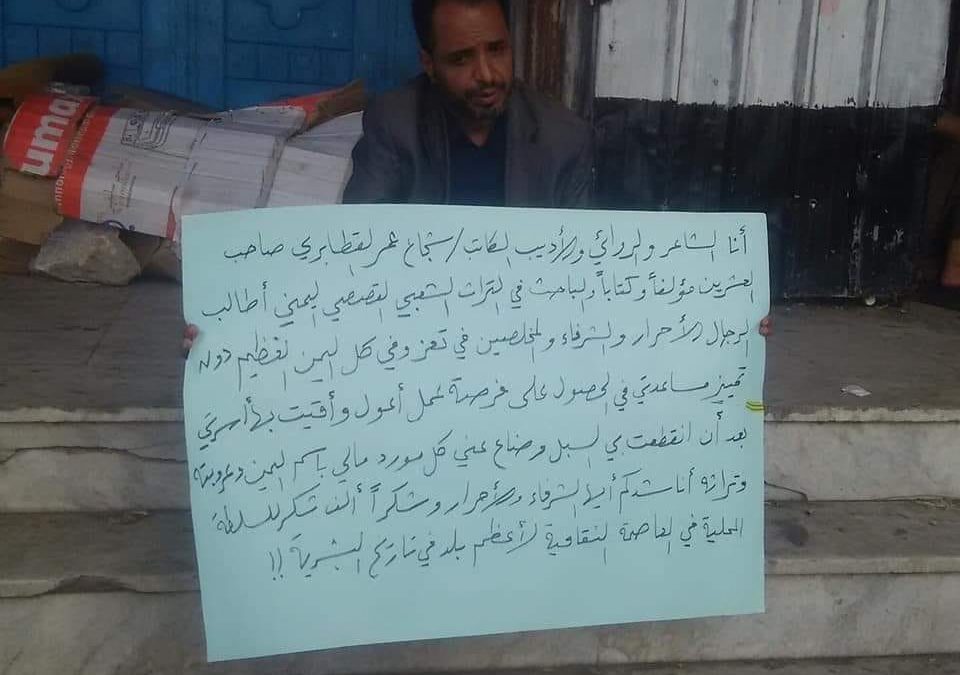 أنا الشاعر والروائي والأديب الكاتب/شجاع عمر القطابري صاحب
العشرين مؤلفاً وكتاباً والباحث في التراث الشعبي القصصي اليمني أطالب
الرجال الأحرار والشرفاء والمخلصين في تعز وفي كل اليمن العظيم دون
تمييز مساعدتي في الحصول على فرصة عمل أعول وأقيت بها أسرتي
بعد أن انقطعت بي السبل وضاع عني كل مورد مالي باسم اليمن وعروبته
وتراثه أناشدكم أيها الشرفاء والأحرار وشكراً ألف شكر للسلطة
المحلية في العاصمة الثقافية لأعظم بلد في تاريخ البشرية !!
uma